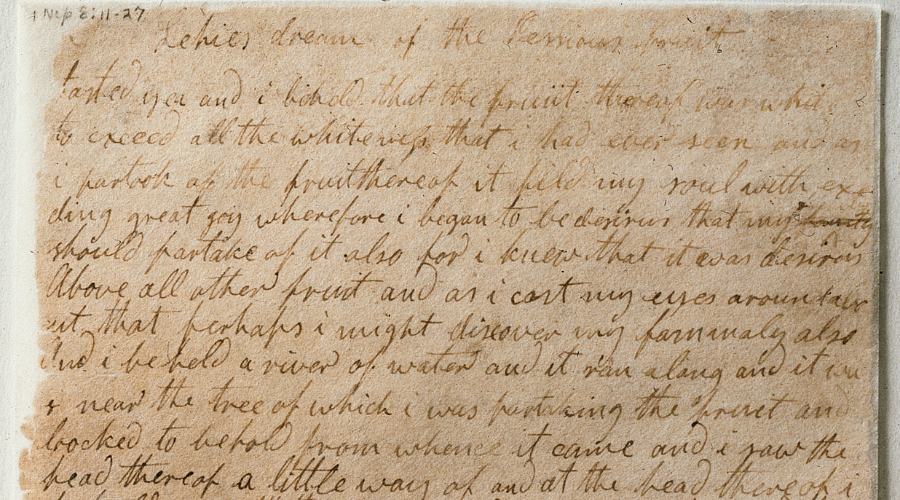 1 Nep 8:11-27
Lehies dream of the Perrious fruit
tasted yea and i behold that the fruiit thereof was whit
to exceed all the whiteness that i had ever seen and as
i partook of the fruitthereof it fild my soul with exe
ding great goy wherefore i began to be desirus that my family
should partake of it also for i knew that it was desirus
Above all other fruit and as i cast my eyes around
ut that perhaps i might discover my fammaly also
And i beheld a river of water and it ran along and it wa
s near the tree of which i was partaking the fruit and
loocked to behold from whence it came and i saw the
head thereof a little way of and at the head thereof i